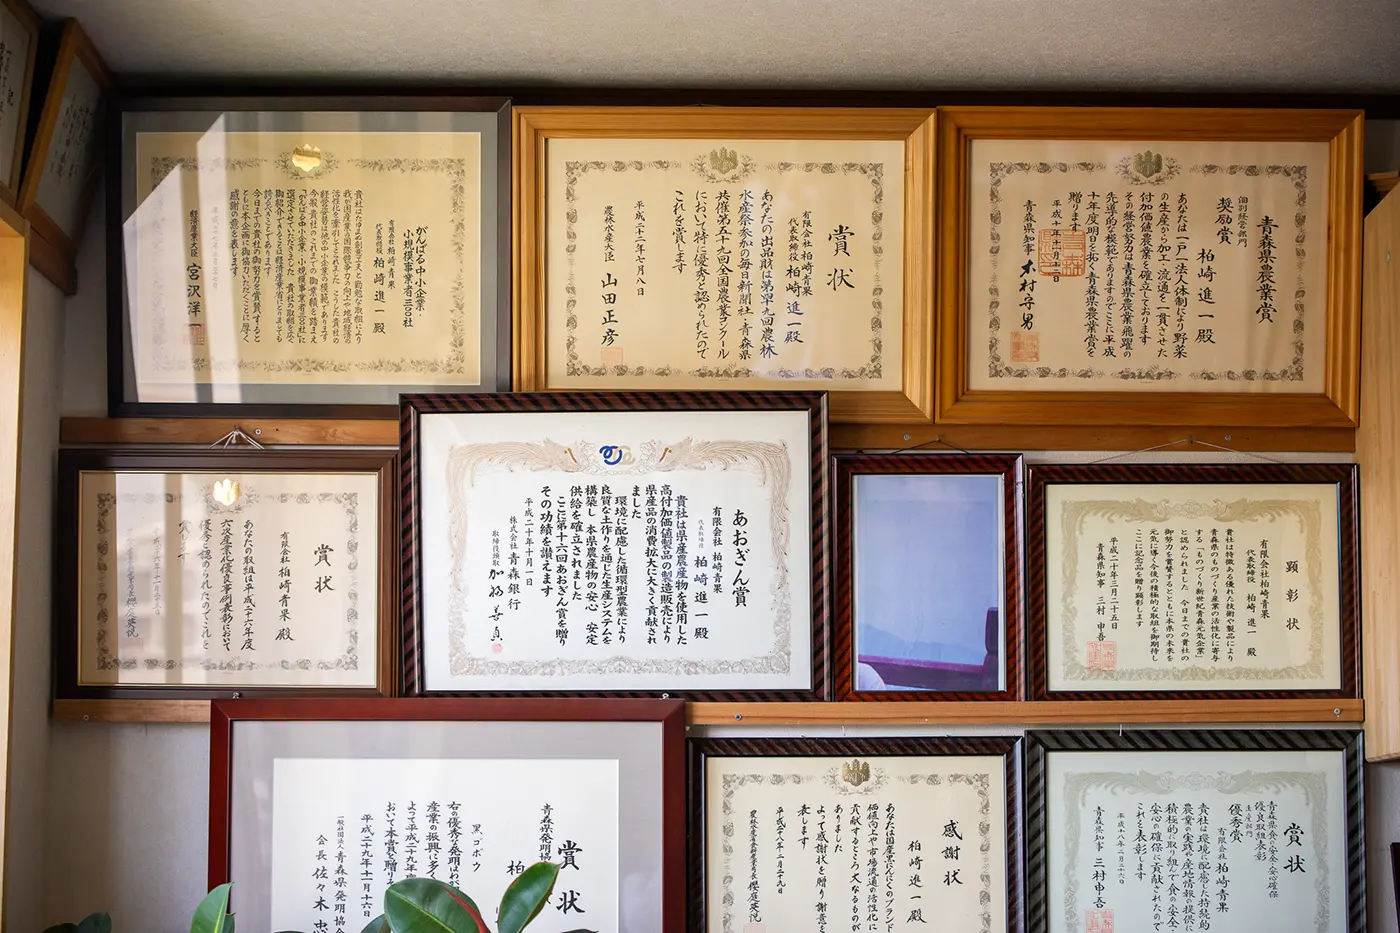 がんばる中小企業・
小規模事業者三〇〇社
有限会社柏崎青果
代表取締役 柏崎進一殿
貴社はたゆまぬ創意工夫と勤勉な取組により
我が国産業の国際競争力の向上や地域経済の
活性化を牽引してこられました こうした貴社の
経営姿勢は他の中小企業の模範であります
今般貴社のこれまでの御業績を踏まえ
「がんばる中小企業・小規模事業者三〇〇社」に
選定させていただきました 貴社の取組を広く
御紹介できることは経済産業省にとりましても
誇るべきことであります
今日までの貴社の御努力を賞賛すると
ともに本企画に御協力いただくことに厚く
感謝の意を表します
経済産業大臣 宮沢洋一
賞状
有限会社柏崎青果
代表取締役 柏崎進一殿
あなたの出品財は第四十九回農林
水産祭参加の毎日新聞社・青森県
共催第五十九回全国農業コンクール
において特に優秀と認められたので
これを賞します
平成二十二年七月八日
農林水産大臣 山田正彦
青森県農業賞
個別経営部門
奨励賞
柏崎進一殿
あなたは一戸一法人体制により野菜
の生産から加工・流通を一貫させた
付加価値農業を確立しております
その経営努力は青森県農業飛躍の
先導的な模範でありますのでここに平成
十年度明日を拓く青森県農業賞を
贈ります
平成十年十一月十二日
青森県知事 木村守男
賞状
有限会社柏崎青果殿
あなたの取組は平成二十六年度
六次産業化優良事例表彰において
優秀と認められたのでこれを
賞します
あおぎん賞
有限会社 柏崎青果
代表取締役 柏崎進一殿
貴社は県産農産物を使用した
高付加価値製品の製造販売により
県産品の消費拡大に大きく貢献され
ました
環境に配慮した循環型農業により
良質な土作りを通じた生産システムを
構築し 本県農産物の安心・安定
供給を確立されました
ここに第十六回あおぎん賞を贈り
その功績を讃えます
平成二十年十月一日
株式会社青森銀行
取締役頭取
顕彰状
有限会社柏崎青果
代表取締役 柏崎進一殿
貴社は特徴ある優れた技術や製品により
青森県のものづくり産業の活性化に寄与
する「ものづくり新世紀青森元気企業」
と認められました 今日までの貴社の
御努力を賞賛するとともに本県の未来を
元気に導く今後の積極的な取組を御期待し
ここに記念品を贈り顕彰します
平成二十年三月二十五日
青森県知事 三村申吾
賞状
青森県発明協
黒ゴボウ
柏
右の優秀な発明はわが
産業の振興に寄
よって平成二十九年度
おいて本賞を贈り
平成二十九年十一月十六日
一般社団法人青森県発明協会
会長佐々木忠
感謝状
柏崎進一殿
あなたは国産黒にんにくのブランド
価値向上や市場流通の活性化に
貢献するところ大なるものが
ありました
よって感謝状を贈り謝意を
表します
平成二十八年二月二十九日
賞状
青森県食の安全・安心確保
優良取組表彰
生産部門
優秀賞
有限会社柏崎青果
貴社は環境に配慮した持続的
農業の実践や産地情報の提供に
積極的に取り組んで食の安全・
安心の確保に貢献されたので
これを表彰します
平成十八年二月二十六日
青森県知事 三村申吾